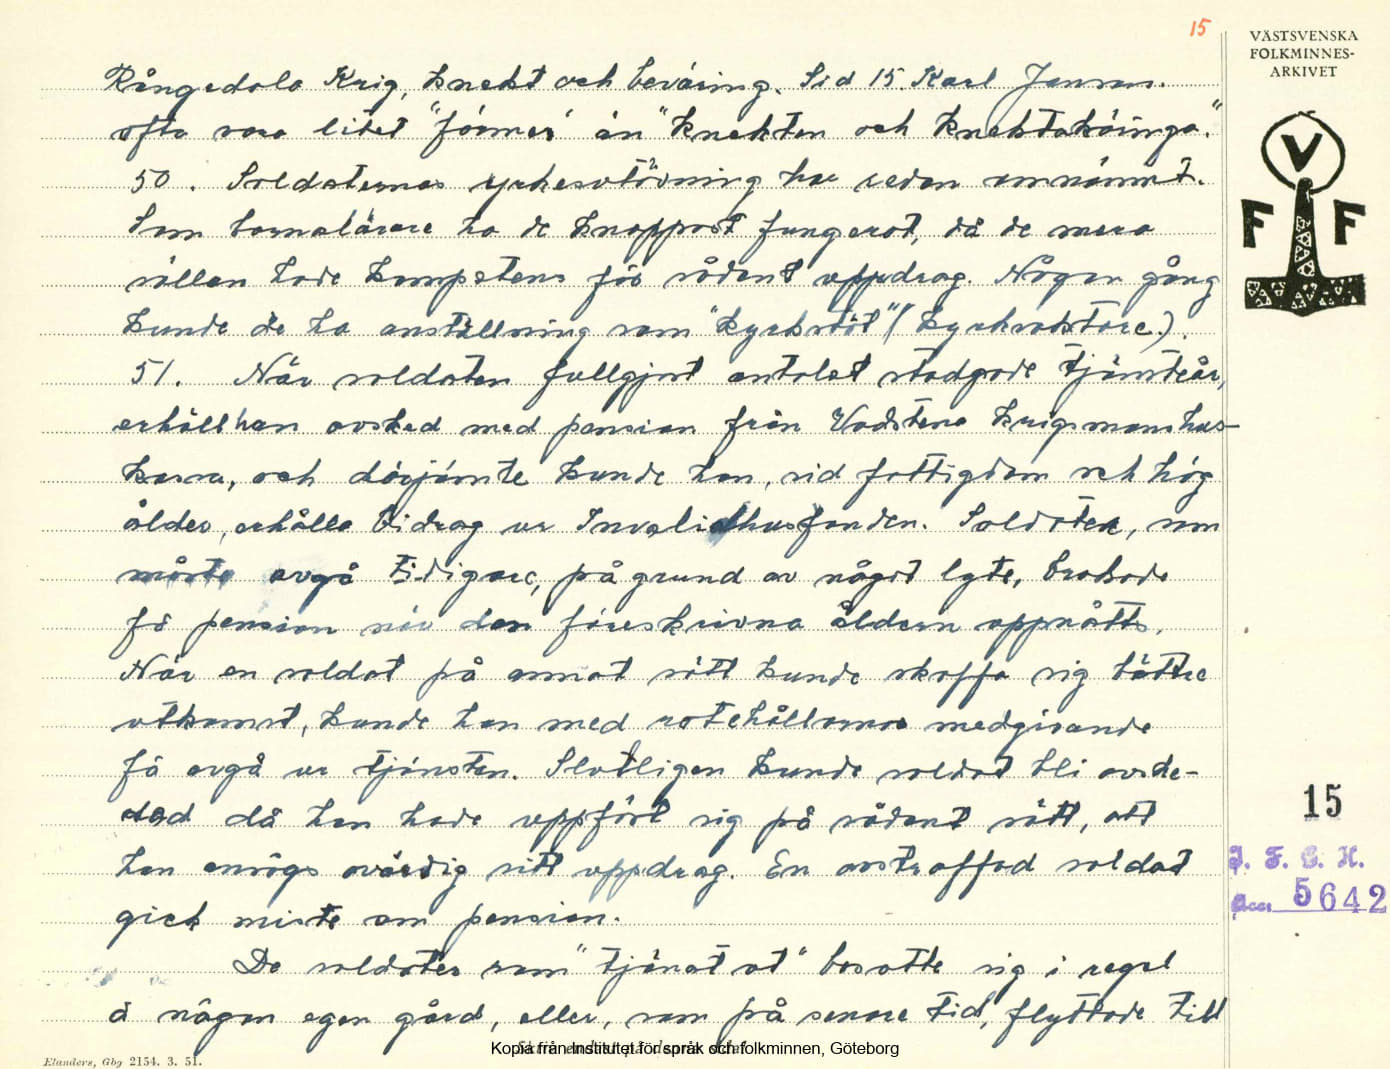 15
VÄSTSVENSKA
FOLKMINNES-
ARKIVET
V
F F
Rångedala Krig, knekt och beväring. Sid 15. Karl Jansson.
ofta vara litet "förmer" än "knekten och knektakäringa."
50. Soldaternas yrkesutövning har redan omnämnts.
Som barnalärare ha de knappast fungerat, då de mera
sällan hade kompetens för sådant uppdrag. Någon gång
kunde de ha anställning som "kyrkstöt" (kyrkvaktare).
51. När soldaten fullgjort antalet stadgade tjänsteår,
erhöll han avsked med pension från Vadstena krigsmanshus-
kassa, och därjämte kunde han, vid fattigdom och hög
ålder, erhålla bidrag ur Invalidhusfonden. Soldaten, som
måste avgå tidigare, på grund av något lyte, brukade
få pension när den föreskrivna åldern uppnåtts.
När en soldat på annat sätt kunde skaffa sig bättre
utkomst, kunde han med rotehållarnas medgivande
få avgå ur tjänsten. Slutligen kunde soldat bli avske-
dad då han hade uppfört sig på sådant sätt, att
han ansågs ovärdig sitt uppdrag. En avstraffad soldat
gick miste om pension.
De soldater som "tjänat ut" bosatte sig i regel
å någon egen gård, eller, som på senare tid, flyttade till
15
I. F. G. H.
Acc. 5642
Kopia från Institutet för språk och folkminnen, Göteborg
Elanders, Gbg 2154. 3. 51.